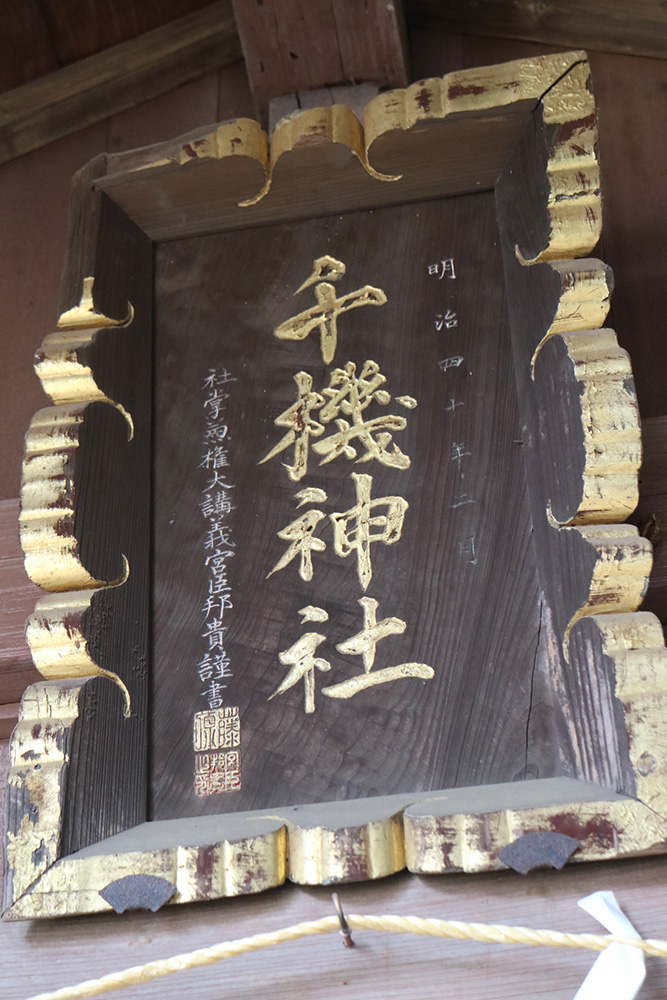 明治四十年二月
千機神社
社掌兼権大講義宮臣邦貴謹書